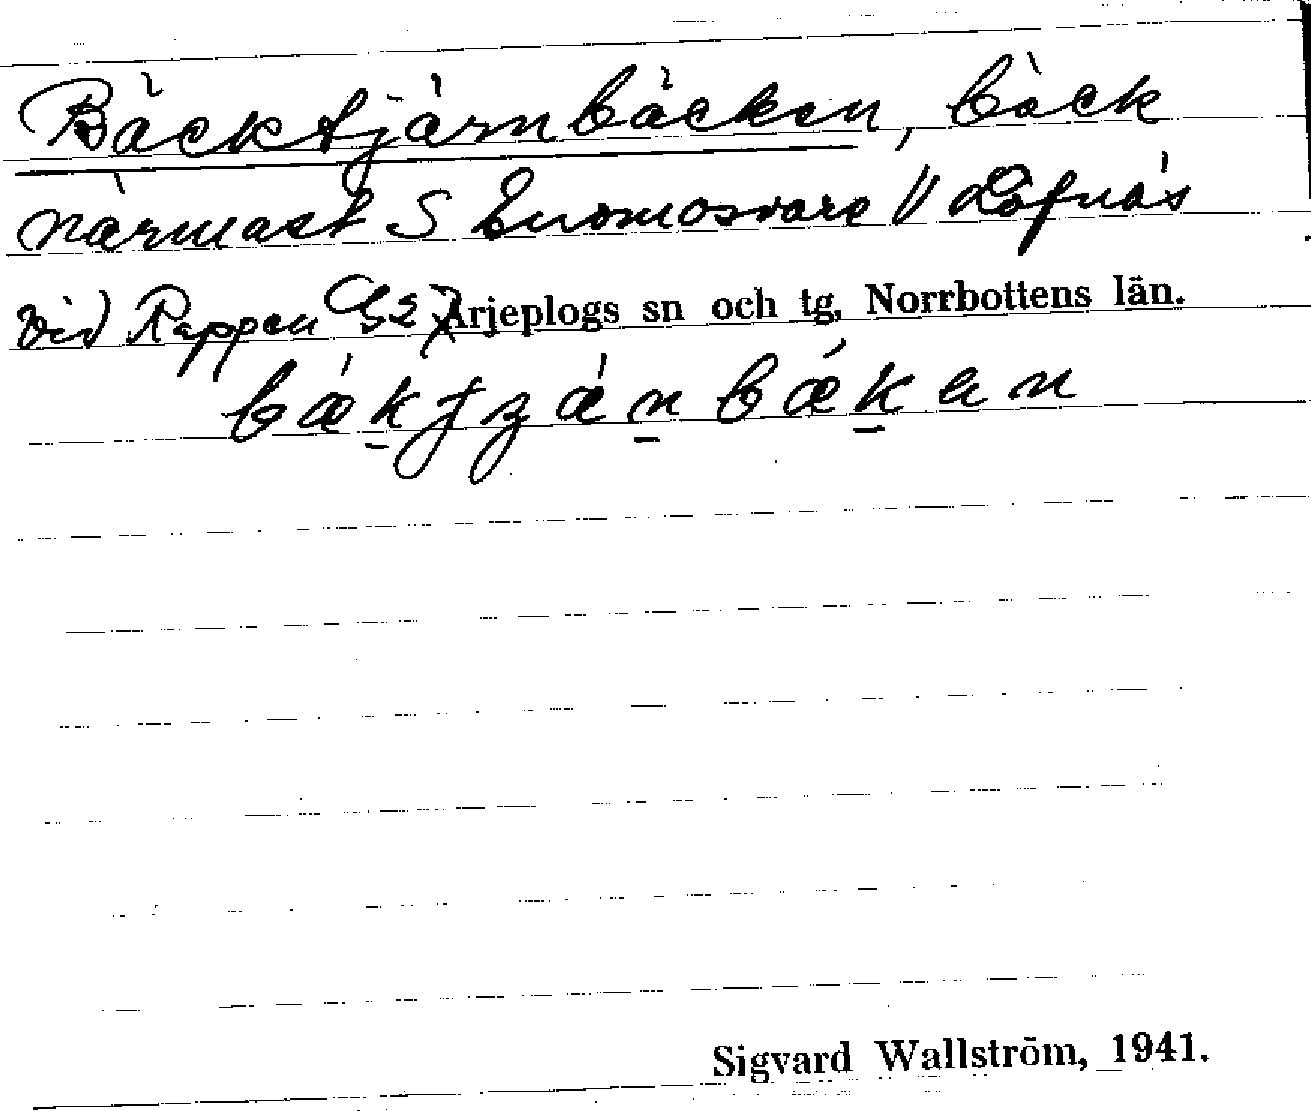 Bäcktjärnbäcken, bäck
närmast S Enomosvare V Löfnäs
vid Rappen G2) Arjeplogs sn och tg, Norrbottens län.
Sigvard Wallström, 1941.